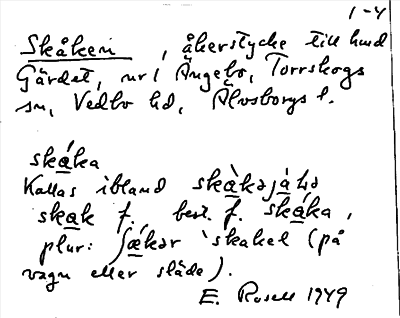 1-4
Skåkeri, åkerstycke till hmd
Gärdet, nr 1 Ängebo, Torrskogs
sn, Vedbo hd, Älvsborgs l.
skáka
Kallas ibland skàkəjàḷə
skak f. best. f. skáka,
plur: ʃækər 'skakel (på
vagn eller släde).
E. Rosell 1949